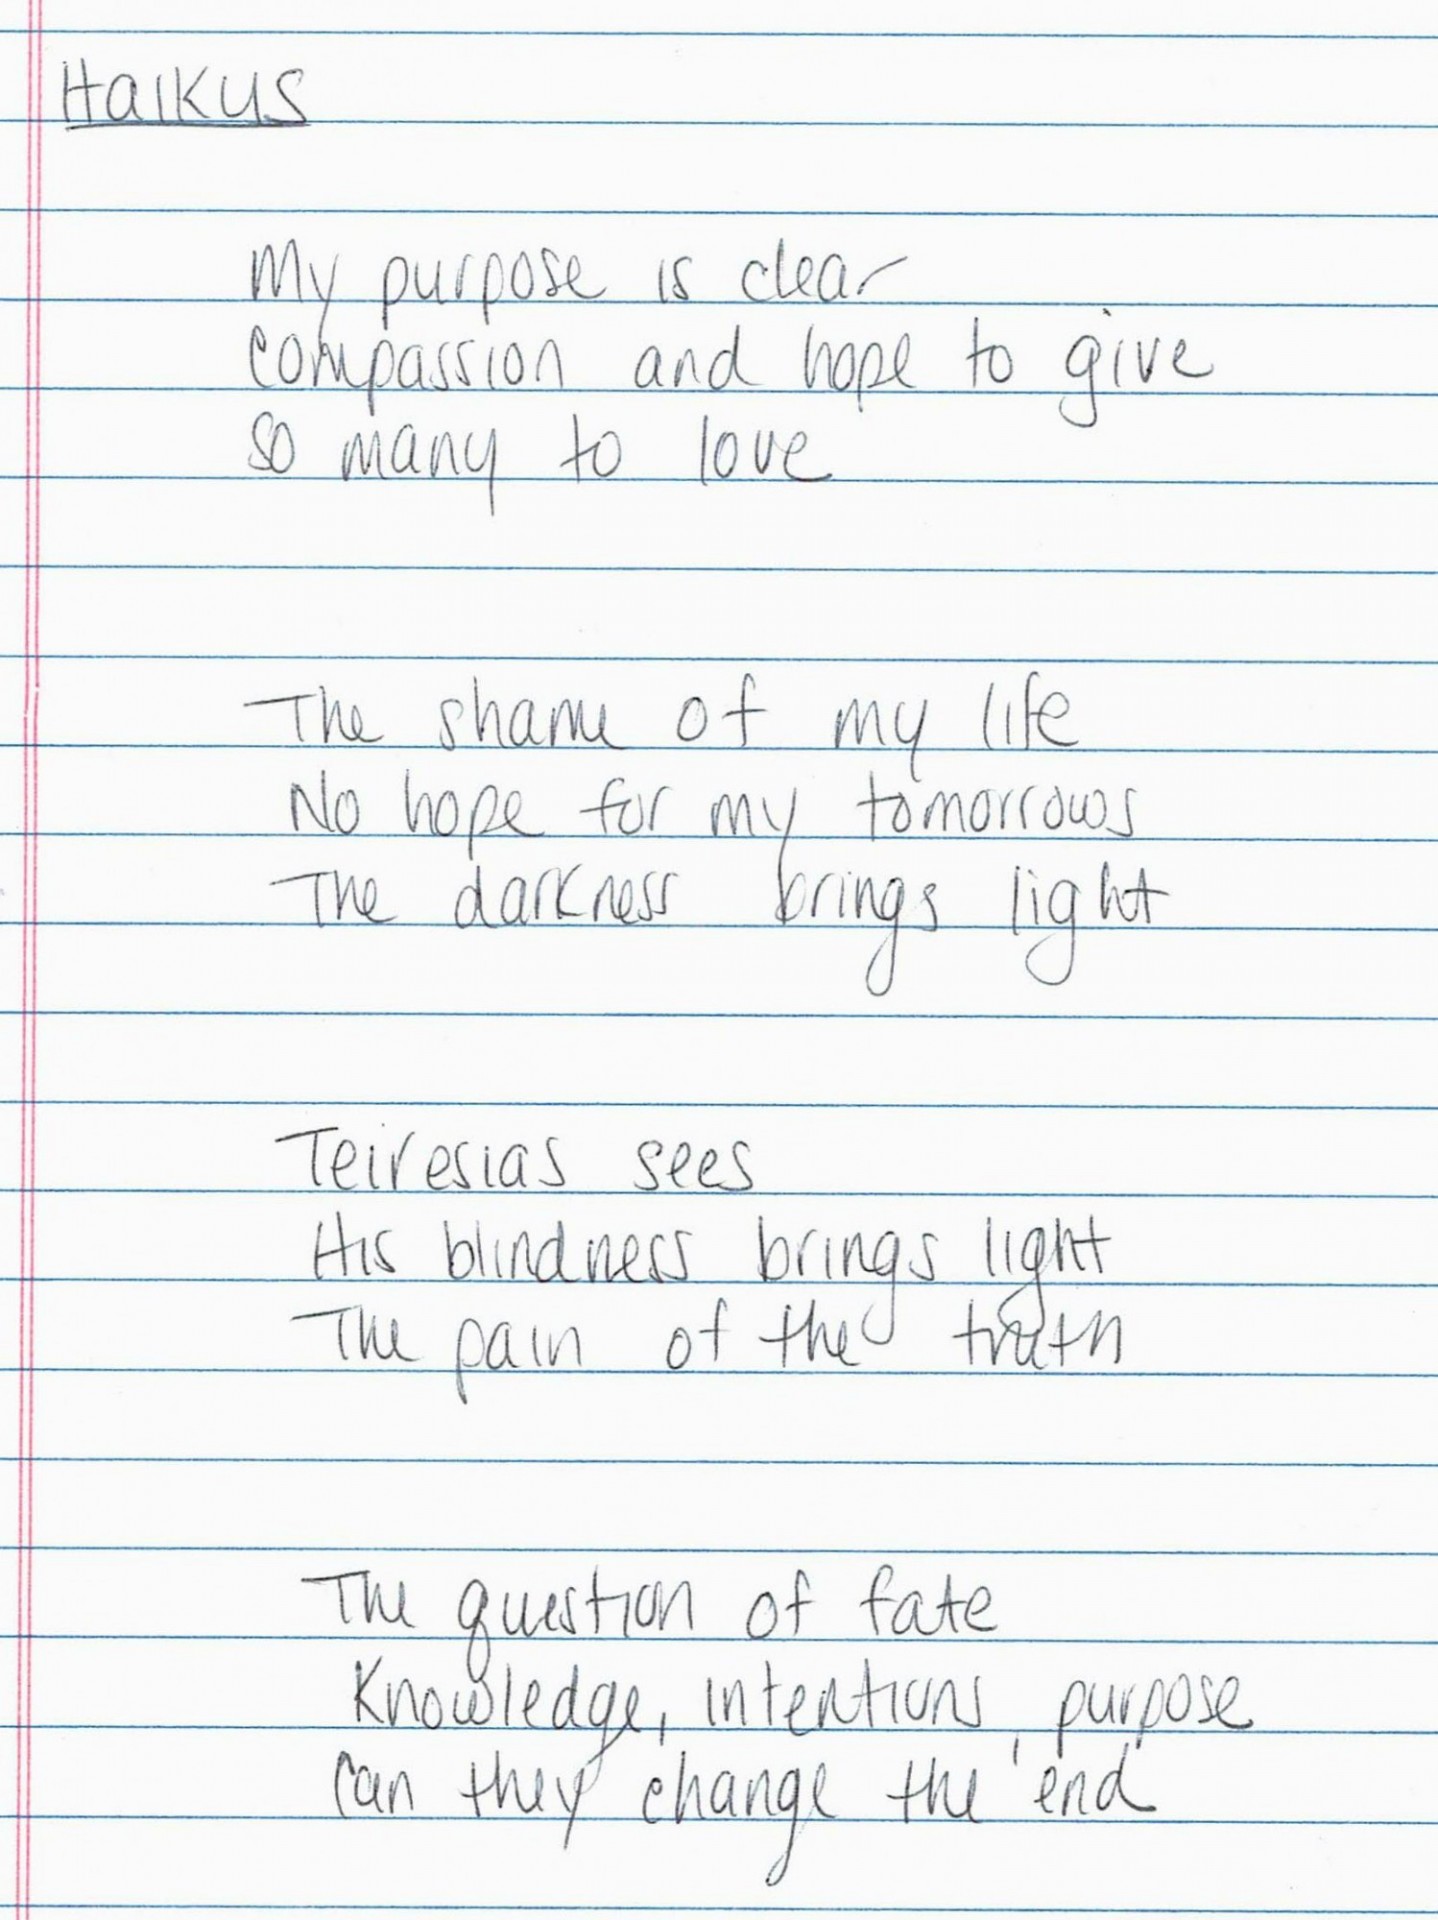 Haikus
My purpose is clear
compassion and hope to give
so many to love
The shame of my life
No hope for my tomorrows
The darkness brings light
Teiresias sees
His blindness brings light
The pain of the truth
The question of fate
Knowledge, intentions, purpose
can they change the end